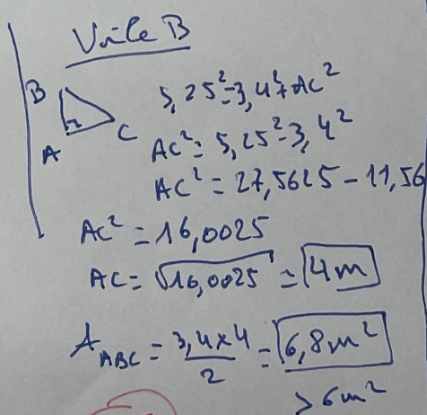 Voile B
B
A
C
5,25² = 3,4² + AC²
AC² = 5,25² - 3,4²
AC² = 27,5625 - 11,56
AC² = 16,0025
AC = √16,0025 = 4m
A_ABC = 3,4 × 4 / 2 = 6,8 m²
> 6m²